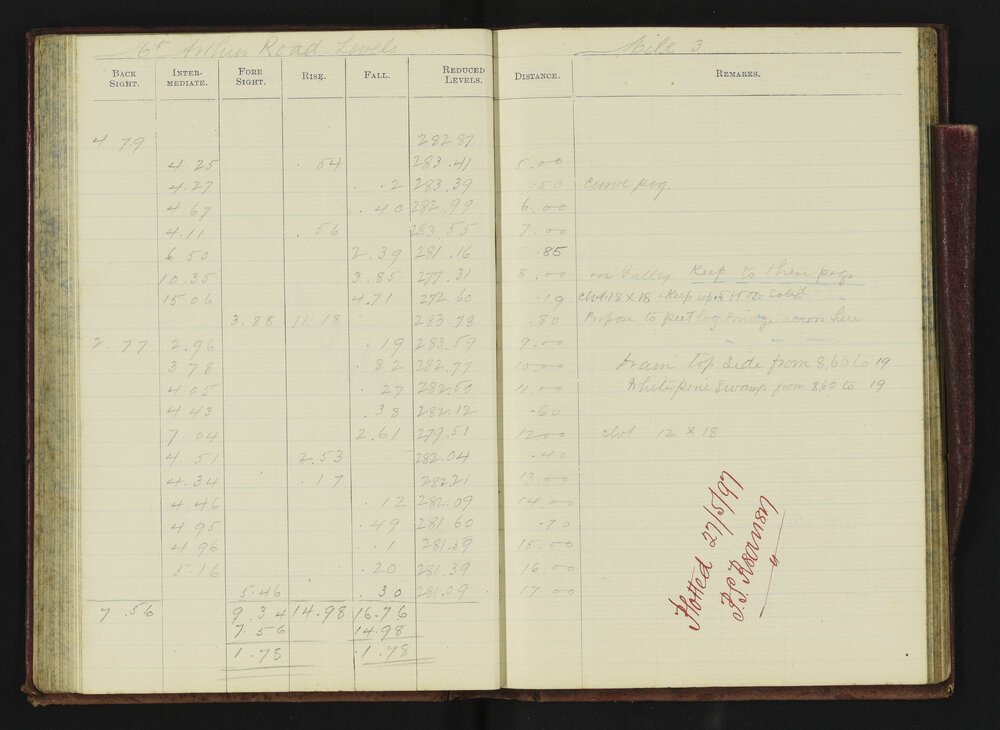 Mt Arthur Road Levels Mile 3
BACK SIGHT. INTER-MEDIATE. FORE SIGHT. RISE. FALL. REDUCED LEVELS. DISTANCE. REMARKS.
4 79 282.87
4.25 .54 283.41 5.00
4.27 .2 283.39 .50 curve peg.
4.67 .40 282.99 6.00
4.11 .56 283.55 7.00
6.50 2.39 281.16 .85
10.35 3.85 277.31 8.00 in Gulley. Keep to these pegs
15.06 4.71 272.60 .19 clvt 18 x 18 Keep up solid
3.88 11.18 283.78 .80 Propose to put log Bridge across here
2.77 2.96 .19 283.59 9.00
3 78 .82 282.77 10.00 Drain top side from 8.60 to 19
4 05 .27 282.50 11.00 White pine Swamp from 8.60 to 19
4 43 .38 282.12 .60
7 04 2.61 279.51 12.00 clvt 12 x 18
4.51 2.53 282.04 .40
4.34 .17 282.21 13.00
4.46 .12 282.09 14.00
4.95 .49 281.60 .70
4 96 .1 281.59 15.00
5.16 .20 281.39 16.00
5.46 .30 281.09 17.00
7.56 9.34 14.98 16.76
7.56 14.98
1.78 .1.78
Plotted 27/5/97